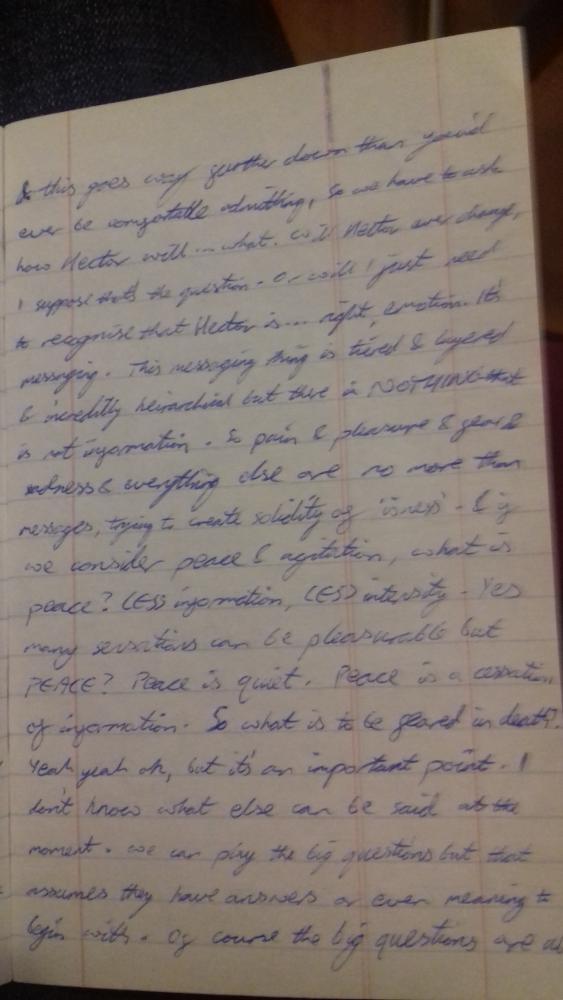 & this goes way further down than you'd
ever be comfortable admitting, so we have to ask
how Hector will... what. Will Hector ever change,
I suppose that's the question. Or will I just need
to recognise that Hector is... right, emotion. It's
messaging. This messaging thing is tiered & layered
& incredibly heirarchial but there is NOTHING that
is not information. So pain & pleasure & fear &
sadness & everything else are no more than
messages, trying to create solidity of 'isness'. & if
we consider peace & agitation, what is
peace? LESS information, LESS intensity. Yes
many sensations can be pleasurable but
PEACE? Peace is quiet. Peace is a cessation
of information. So what is to be feared in death?
Yeah yeah ok, but it's an important point. I
don't know what else can be said at the
moment. We can play the big questions but that
assumes they have answers or even meaning to
begin with. Of course the big questions are